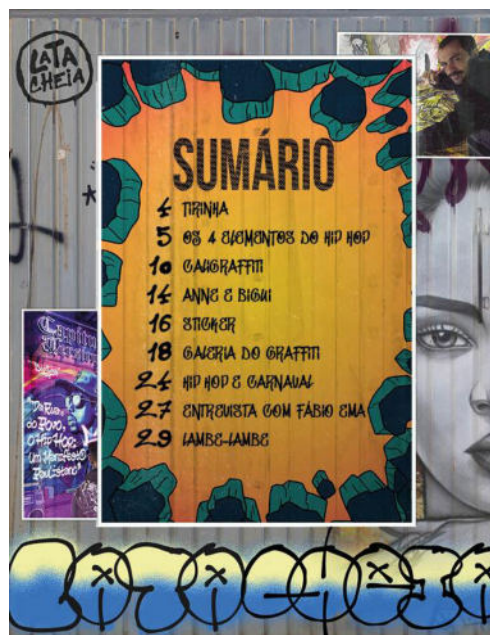 LATA
CHEIA
SUMÁRIO
4 TIRINHA
5 OS 4 ELEMENTOS DO HIP HOP
10 CALIGRAFFITI
14 ANNE E BIGUI
16 STICKER
18 GALERIA DO GRAFFITI
24 HIP HOP E CARNAVAL
27 ENTREVISTA COM FÁBIO EMA
29 LAMBE-LAMBE
Da Rua
do Povo,
o Hip Hop:
um Manifesto
Paulistano